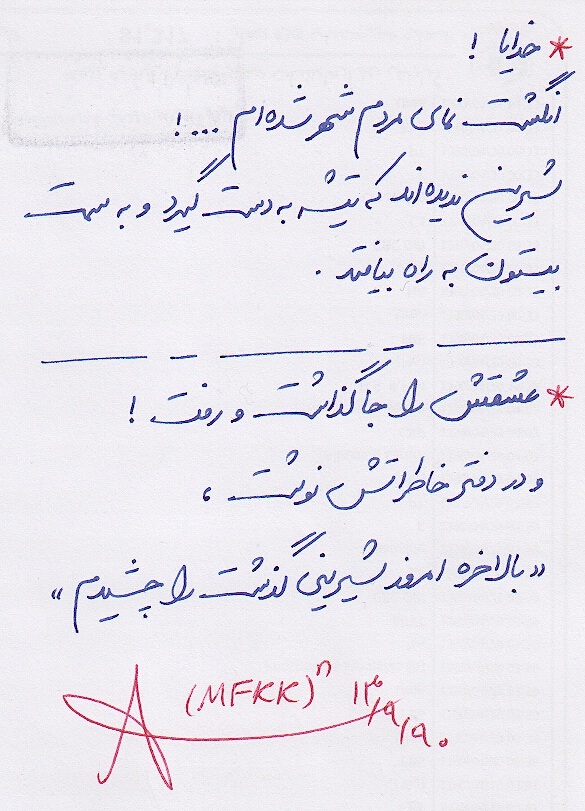 * خدایا !
انگشت نمای مردم شهر شده ام ... !
شیرین ندیده اند که تیشه به دست گیرد و به سمت
بیستون به راه بیافتد .
* عشقش را جا گذاشت و رفت !
و در دفتر خاطراتش نوشت ،
« بالاخره امروز شیرینی گذشت را چشیدم »
(MFKK)ⁿ ۱۳/۹/۹۰